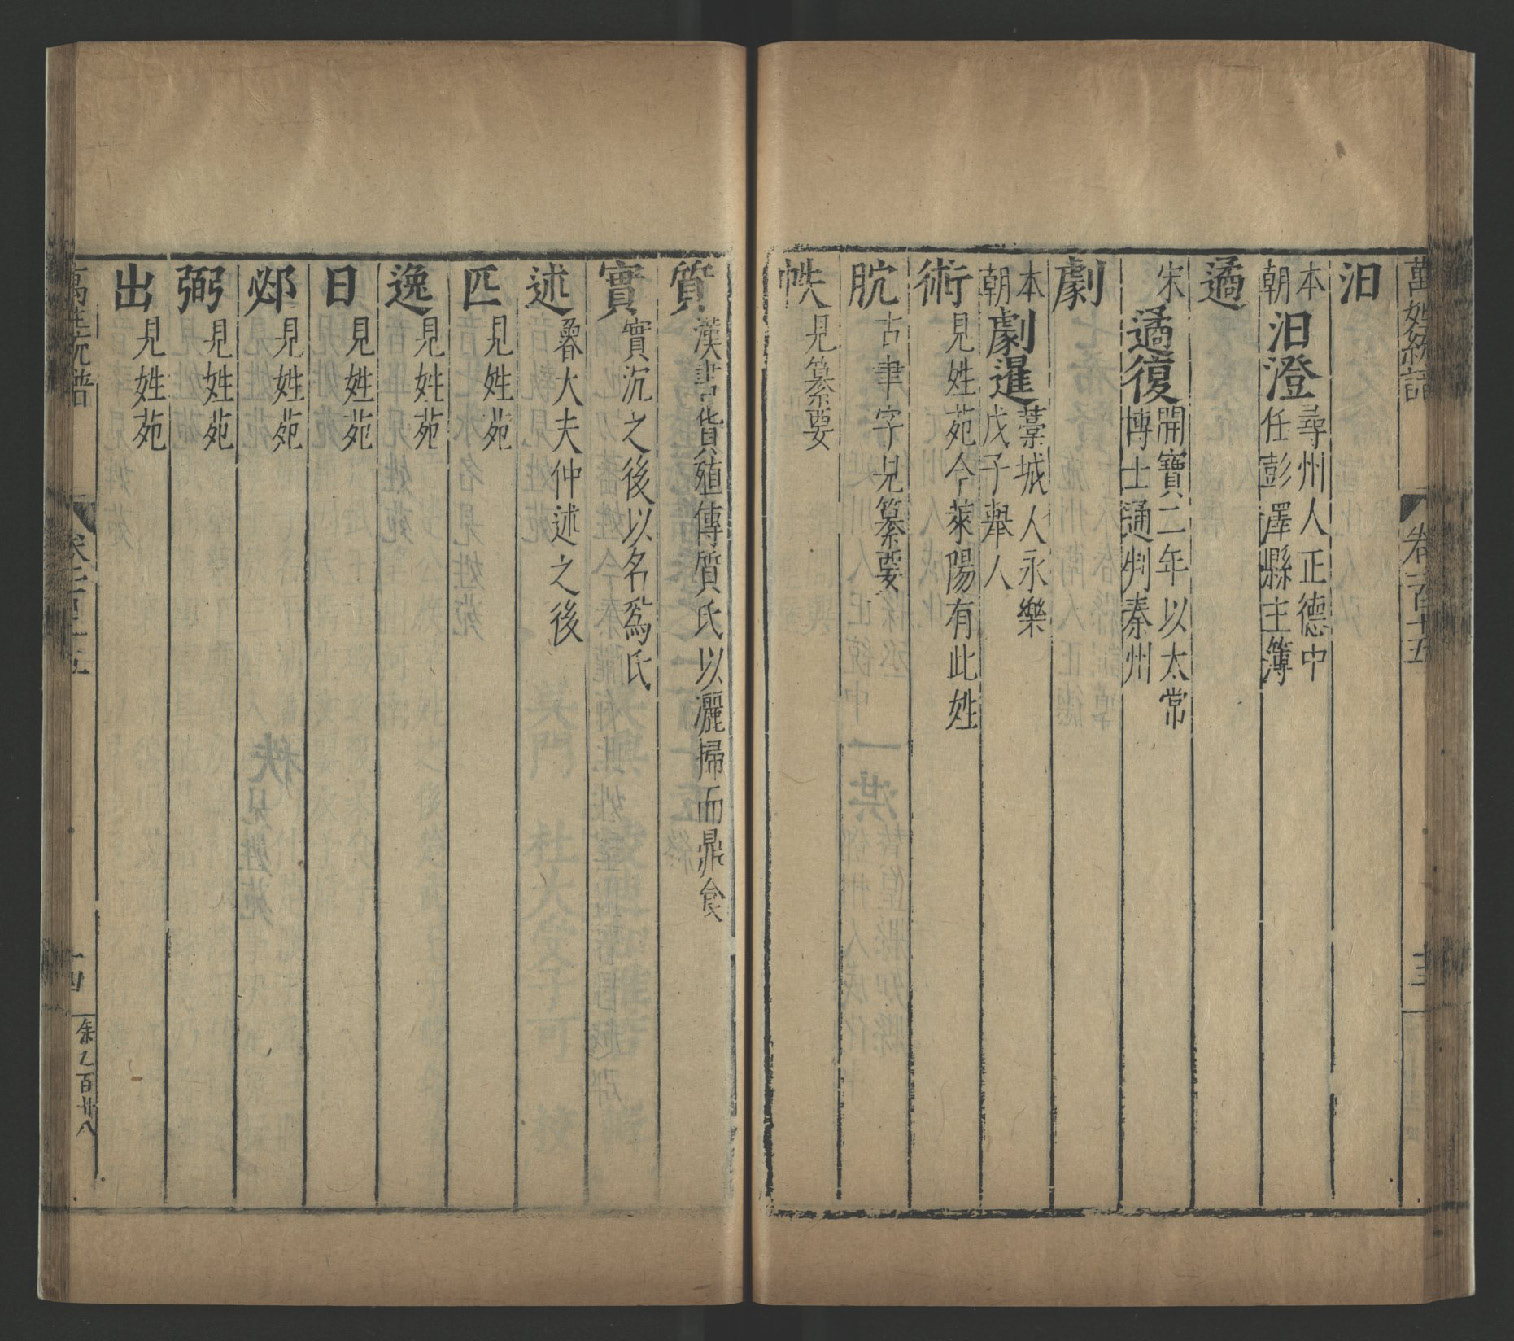 萬姓統譜 卷一百十五 十三
汨
本朝 汨澄 尋州人正德中
任彭澤縣主簿
遹
宋 遹復 開寶二年以太常
博士通判秦州
劇
本朝 劇暹 藁城人永樂
戊子舉人
術 見姓苑今萊陽有此姓
脫 古聿字見纂要
帙 見纂要
質 漢書貨殖傳質氏以灑掃而鼎食
實 實沉之後以名爲氏
述 魯大夫仲述之後
匹 見姓苑
逸 見姓苑
日 見姓苑
邲 見姓苑
弼 見姓苑
出 見姓苑
萬姓統譜 卷一百十五 十四